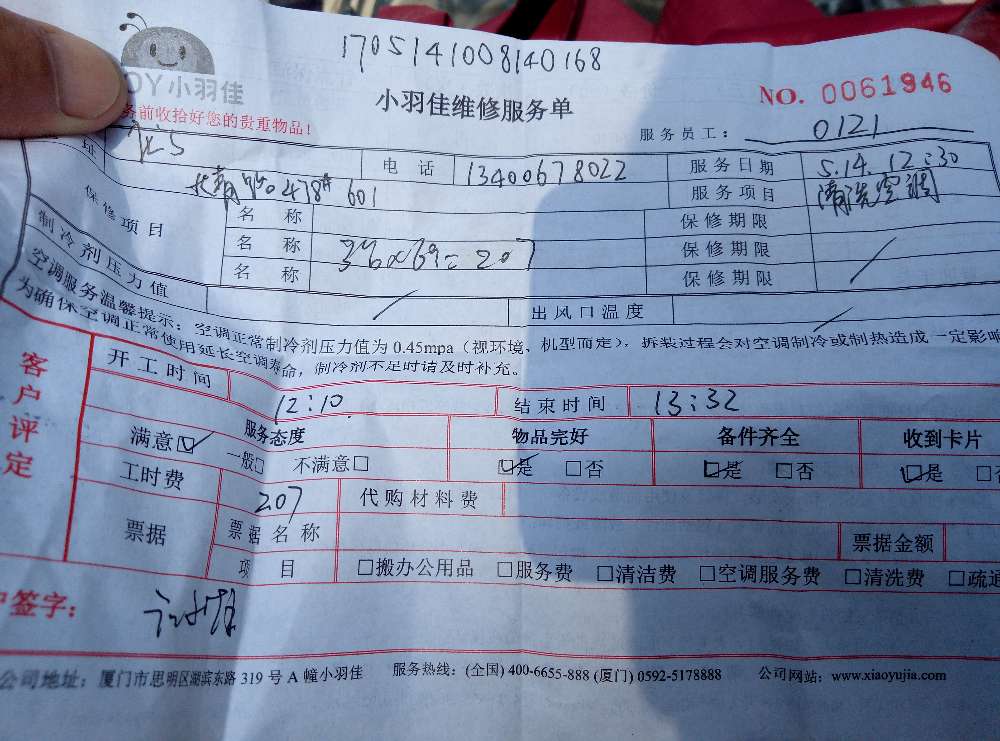 1705141008140168
OY小羽佳
小羽佳维修服务单
NO. 0061946
务前收拾好您的贵重物品!
服务员工: 0121
址
电话 13400678022 服务日期 5.14.12:30
478# 601 服务项目 清洗空调
保修项目 名称 保修期限
名称 3台×69=207 保修期限
名称 保修期限
制冷剂压力值 出风口温度
空调服务温馨提示:空调正常制冷剂压力值为0.45mpa(视环境、机型而定),拆装过程会对空调制冷或制热造成一定影响
为确保空调正常使用延长空调寿命,制冷剂不足时请及时补充。
客户评定
开工时间 12:10 结束时间 13:32
服务态度 物品完好 备件齐全 收到卡片
满意☑ 一般□ 不满意□ ☑是 □否 ☑是 □否 ☑是 □
工时费 207 代购材料费
票据 票据名称 票据金额
项目 □搬办公用品 □服务费 □清洁费 □空调服务费 □清洗费 □疏通
户签字:
公司地址:厦门市思明区湖滨东路319号A幢小羽佳 服务热线:(全国)400-6655-888(厦门)0592-5178888 公司网站:www.xiaoyujia.com